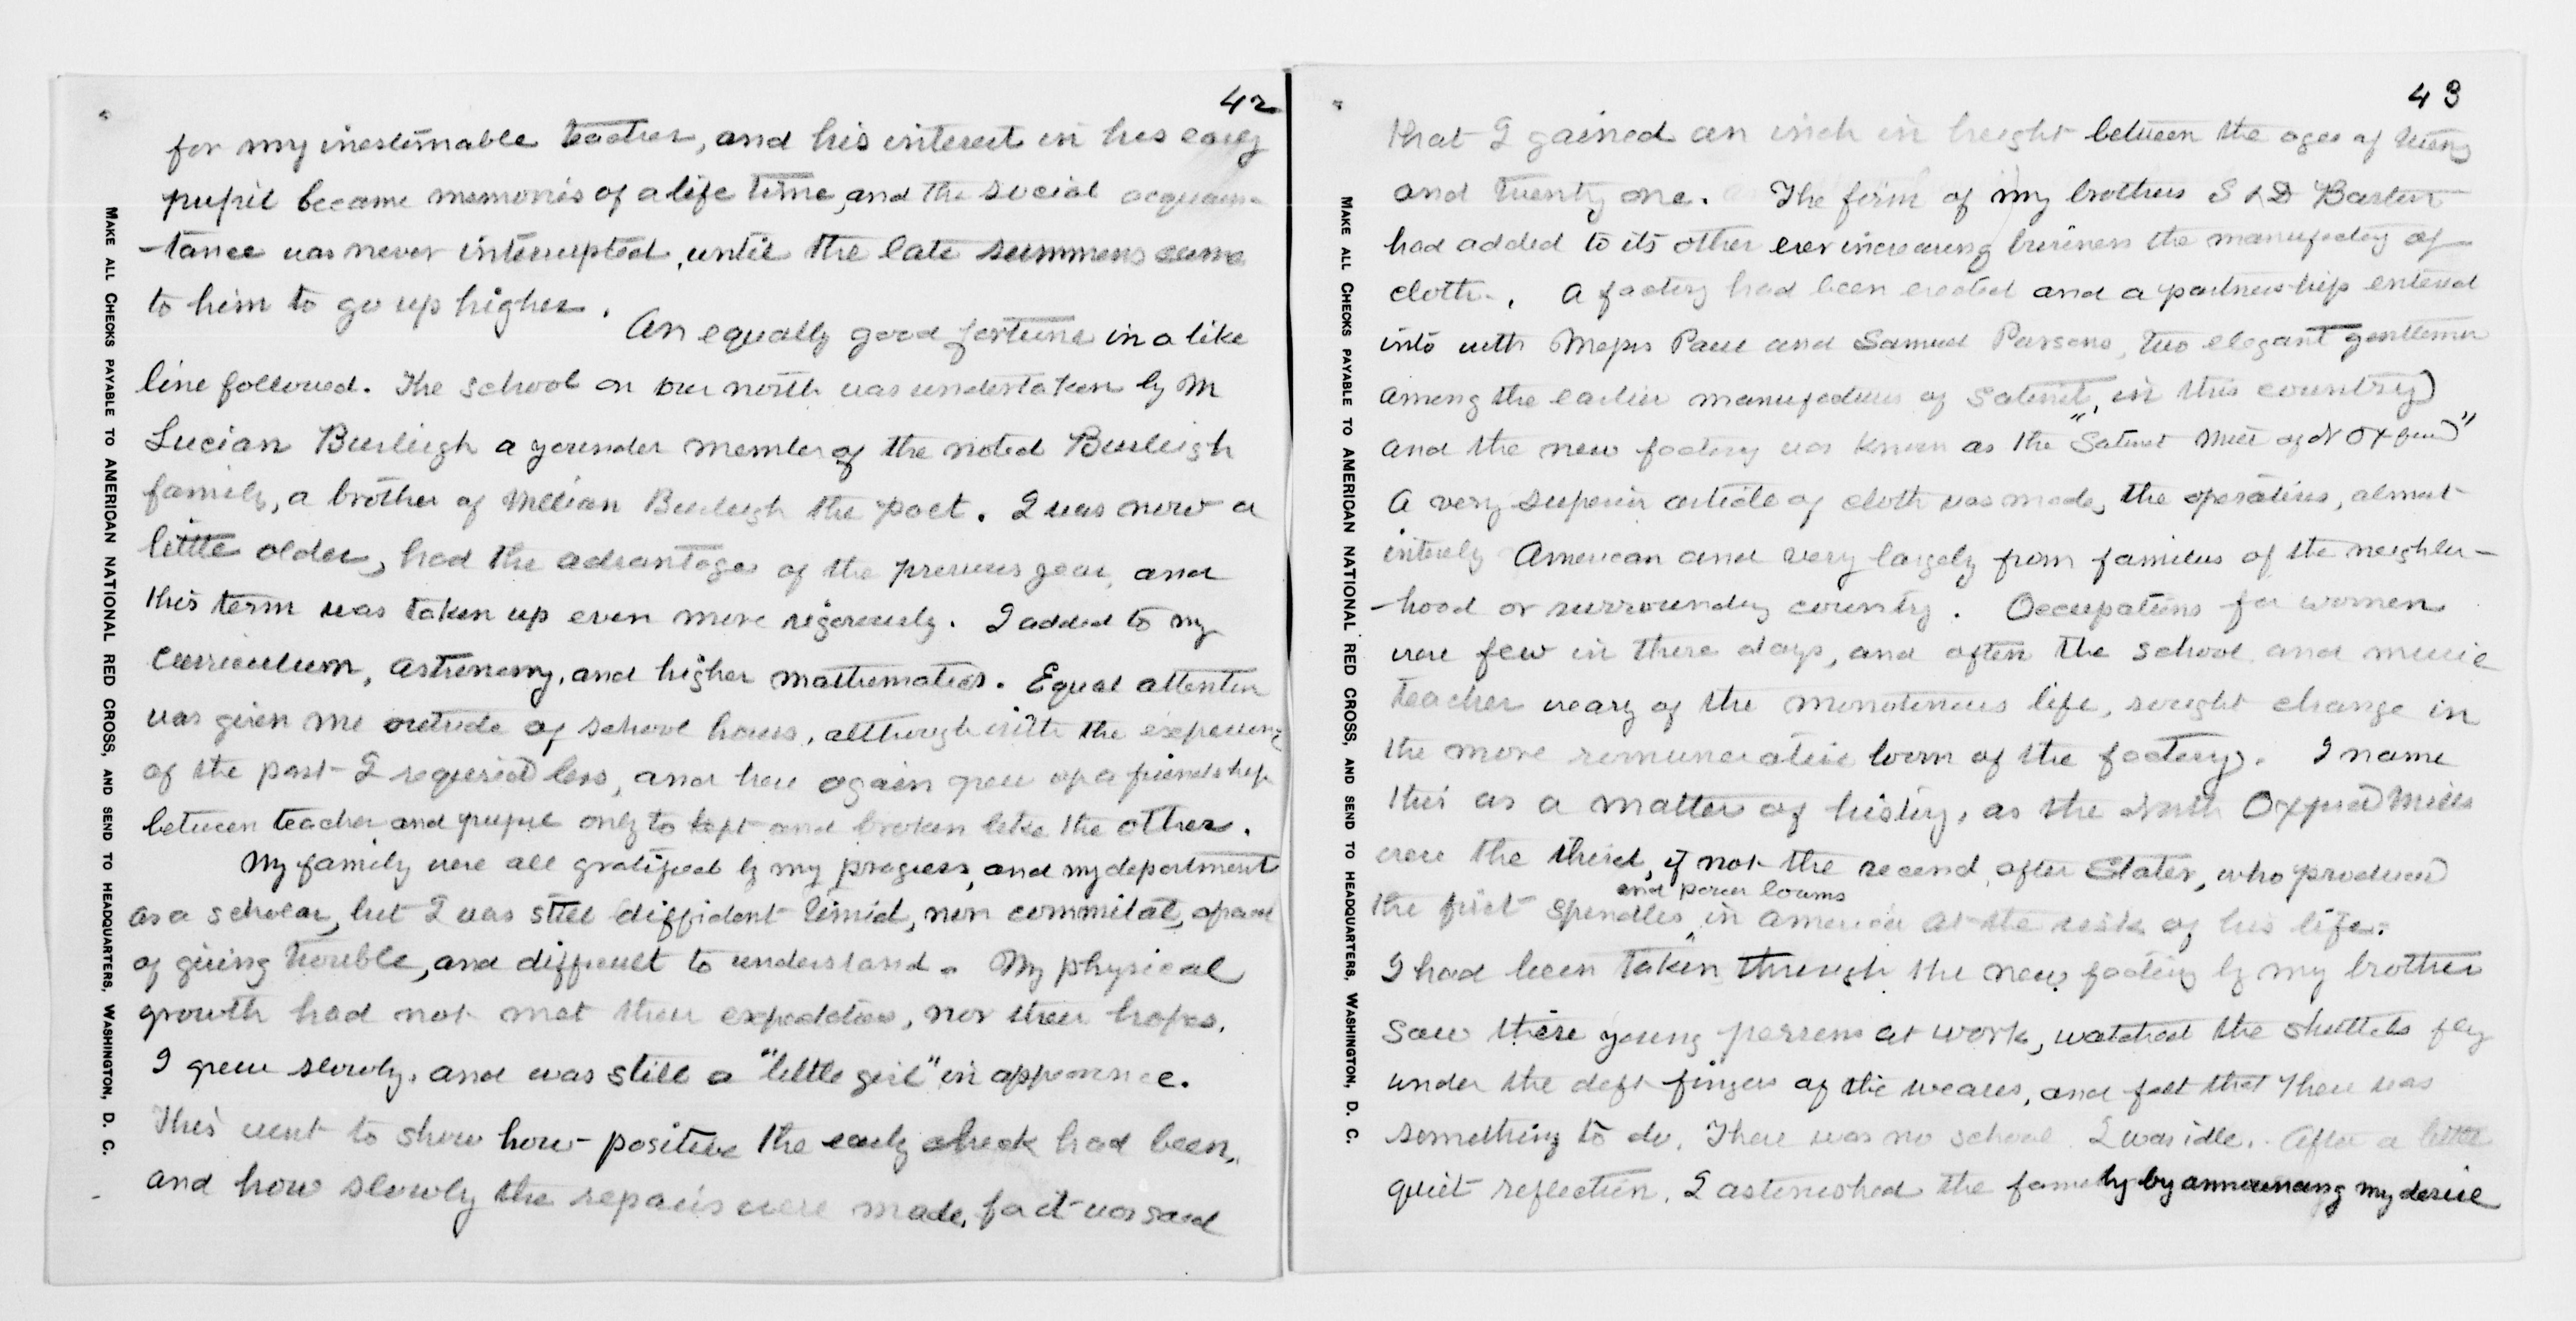 42
for my inestimable teacher, and his interest in his early
pupil became memories of a life time, and the social acquain-
-tance was never interrupted, until the late summons came
to him to go up higher.
An equally good fortune in a like
line followed. The school on our north was undertaken by M
Lucian Burleigh a younder member of the noted Burleigh
family, a brother of William Burleigh the poet. I was now a
little older, had the advantage of the previous year, and
this term was taken up even more vigorously. I added to my
curriculum, astronomy, and higher mathematics. Equal attention
was given me outside of school hours, although with the experience
of the past I required less, and here again grew up a friendship
between teacher and pupil only to kept and broken like the other.
My family were all gratified by my progress, and my deportment
as a scholar, but I was still diffident timid, non commital, afraid
of giving trouble, and difficult to understand. My physical
growth had not met their expectation, nor their hopes.
I grew slowly, and was still a "little girl" in appearance.
This went to show how positive the early check had been,
and how slowly the repairs were made, fact was said
MAKE ALL CHECKS PAYABLE TO AMERICAN NATIONAL RED CROSS, AND SEND TO HEADQUARTERS, WASHINGTON, D. C.
43
that I gained an inch in height between the ages of twenty
and twenty one. The firm of my brothers S & D Barton
had added to its other ever increasing business the manufactory of
cloth. A factory had been erected and a partnership entered
into with Messrs Paul and Samuel Parsons, two elegant gentlemen
among the earlier manufactures of Satinet, in this country)
and the new factory was known as the "Satinet Mill of N Oxford"
A very superior article of cloth was made, the operatives, almost
intirely American and very largely from families of the neighbor-
-hood or surrounding country. Occupations for women
were few in those days, and often the school and music
teacher weary of the monotonous life, sought change in
the more remunerative loom of the factory. I name
this as a matter of history, as the North Oxford Mills
were the third, if not the second, after Slater, who produced
and power looms
the first spindles, in America at the risk of his life.
I had been taken through the new factory by my brother
saw these young persons at work, watched the shuttels fly
under the deft fingers of the weavers, and felt that there was
something to do. There was no school I was idle. After a little
quiet reflection, I astonished the family by announcing my desire
MAKE ALL CHECKS PAYABLE TO AMERICAN NATIONAL RED CROSS, AND SEND TO HEADQUARTERS, WASHINGTON, D. C.